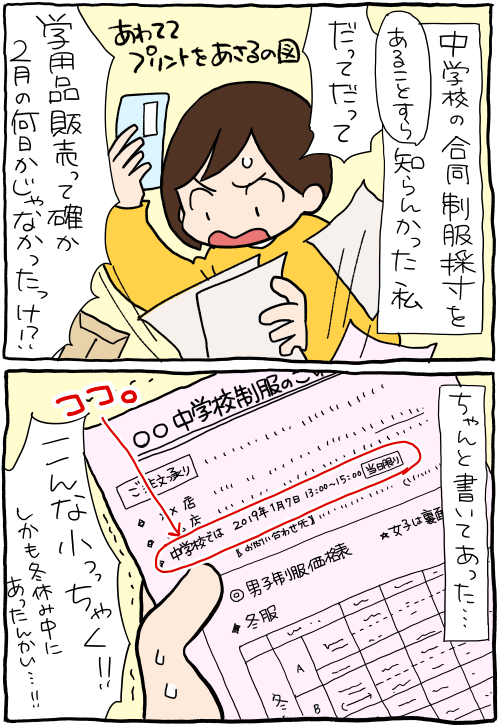 中学校の合同制服採寸を
あることすら知らんかった私
だってだって
あわてて
プリントをあさるの図
学用品販売って確か
2月の何日かじゃなかったっけ!?
ちゃんと書いてあった…
ココ。
○○中学校制服のご
ご注文承り
店
店
中学校では 2019年1月7日 13:00~15:00 当日限り
お問い合わせ先】
★女子は裏面
◎男子制服価格表
◆冬服
A
冬
B
こんな小っちゃく!!
しかも冬休み中に
あったんかい…!!